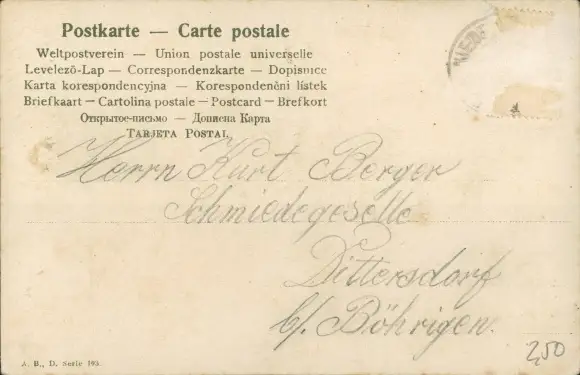 Postkarte — Carte postale
Weltpostverein — Union postale universelle
Levelező-Lap — Correspondenzkarte — Dopisnice
Karta korespondencyjna — Korespondenčni listek
Briefkaart — Cartolina postale — Postcard — Brefkort
Открытое-письмо — Дописна Карта
TARJETA POSTAL
Herrn Kurt Berger
Schmiedegeselle
Dittersdorf
b/. Böhrigen.
A. B., D. Serie 193.
2,50